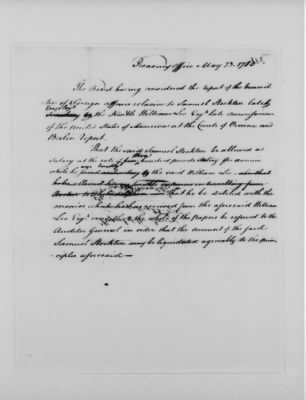 Treasury Office May 23. 1780
The Board having considered the report of the Commit
tee of Foreign affairs relative to Samuel Stockton lately
employed by the Honble William Lee Esqr late commissioner
of the United States of America at the Courts of Vienna and
Berlin Report.
That the said Samuel Stockton be allowed as
Salary at the rate of hundred pounds Sterling per annum
while he was by the said William Lee
That he be debited with the
monies which he has received from the aforesaid William
Lee Esqr of the Papers be referred to the
Auditor General in order that the account of the said
Samuel Stockton may be liquidated agreeably to the prin
ciples aforesaid—